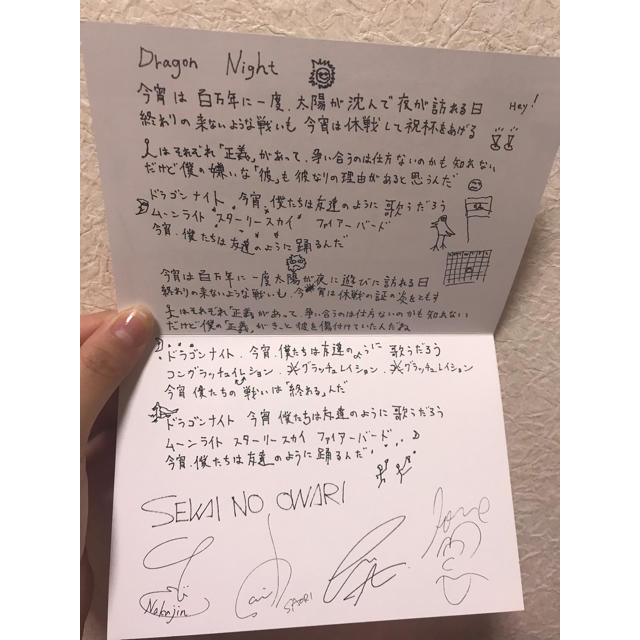 Dragon Night
今宵は百万年に一度、太陽が沈んで夜が訪れる日 Hey!
終わりの来ないような戦いも 今宵は休戦して祝杯をあげる
人はそれぞれ「正義」があって、争い合うのは仕方ないのかも知れない
だけど僕の嫌いな「彼」も彼なりの理由があると思うんだ
ドラゴンナイト 今宵、僕たちは友達のように歌うだろう
ムーンライト スターリースカイ ファイアーバード
今宵、僕たちは友達のように踊るんだ
今宵は百万年に一度太陽が夜に遊びに訪れる日
終わりの来ないような戦いも、今宵は休戦の証の炎をともす
人はそれぞれ「正義」があって、争い合うのは仕方ないのかも知れない
だけど僕の「正義」がきっと彼を傷付けていたんだね
ドラゴンナイト、今宵、僕たちは友達のように歌うだろう
コングラッチュイレション、グラッチュレイション、グラッチュレイション
今宵 僕たちの戦いは「終わる」んだ
ドラゴンナイト 今宵 僕たちは友達のように歌うだろう
ムーンライト スターリースカイ ファイアーバード
今宵、僕たちは友達のように踊るんだ
SEKAI NO OWARI
Nakajin
Saori SAORI
Love